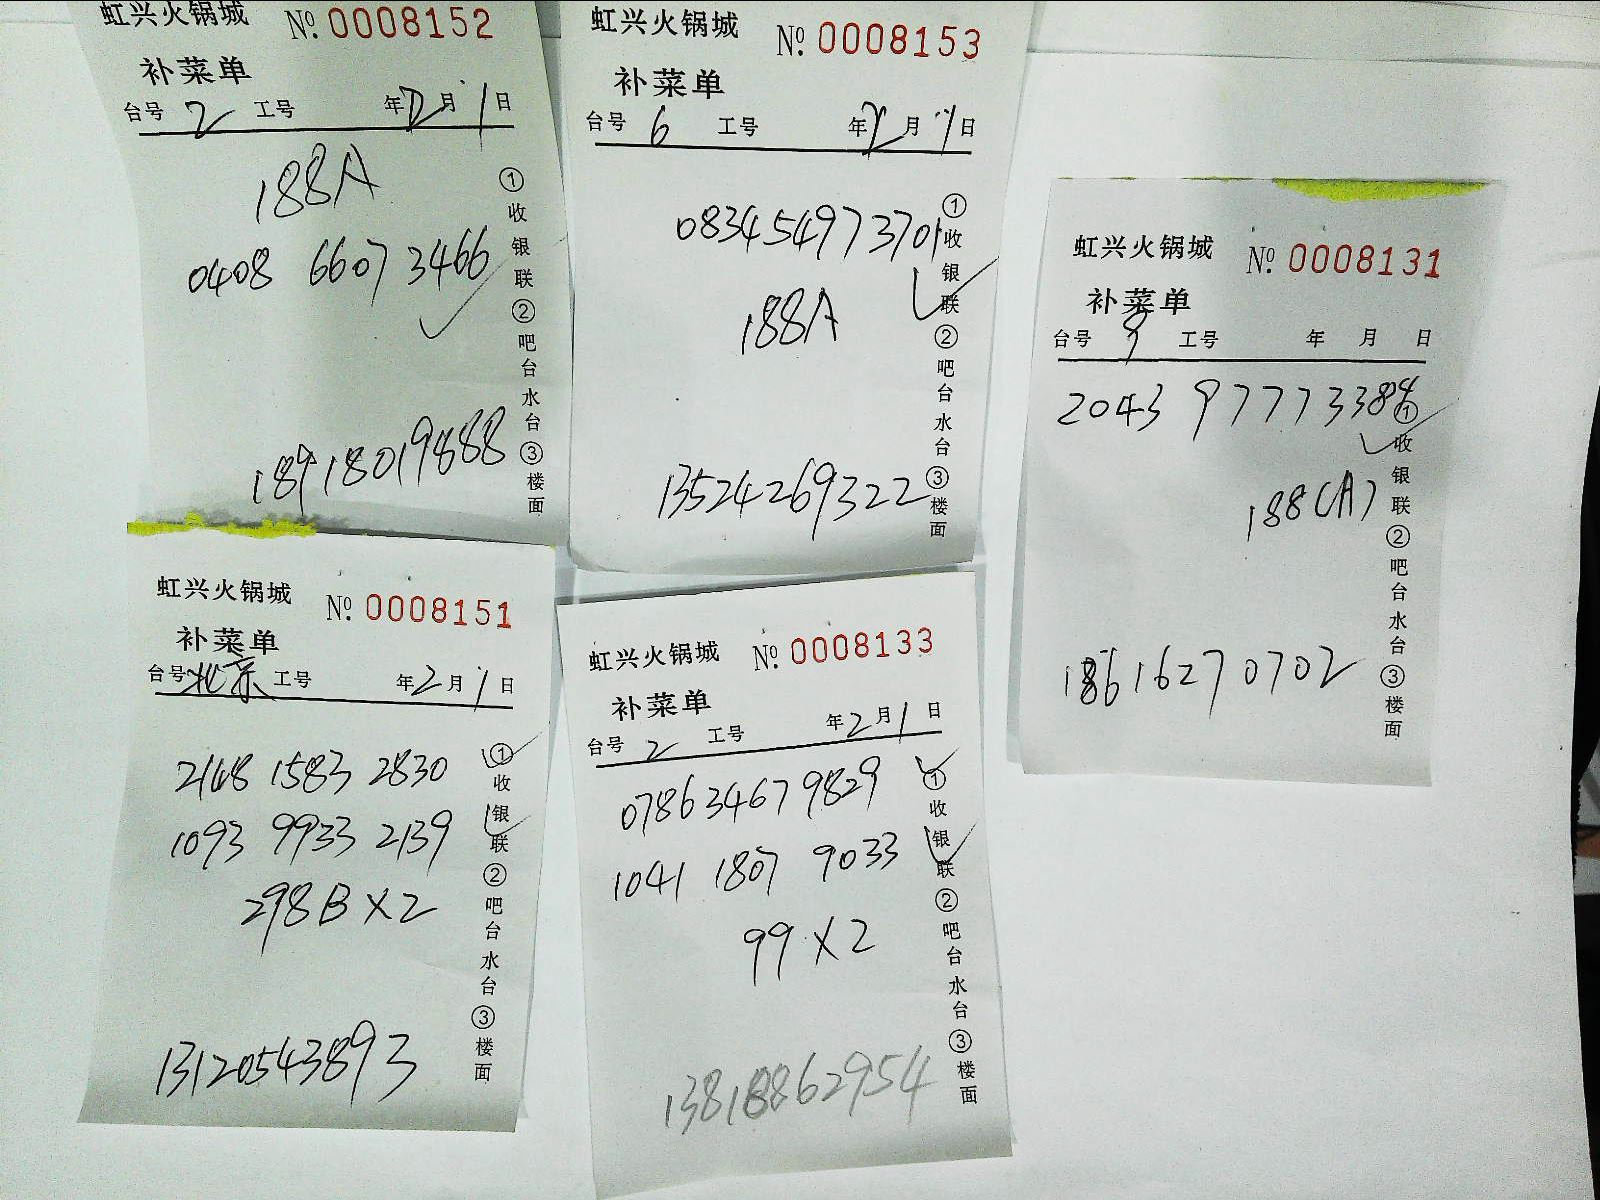 虹兴火锅城 № 0008152
补菜单
台号 2 工号 年 2 月 1 日
188A
0408 6607 3466
18918019888
①收银联②吧台水台③楼面
虹兴火锅城 № 0008153
补菜单
台号 6 工号 年 2 月 1 日
083454973701
188A
13524269322
①收银联②吧台水台③楼面
虹兴火锅城 № 0008131
补菜单
台号 9 工号 年 月 日
2043 97773384
188(A)
18616270702
①收银联②吧台水台③楼面
虹兴火锅城 № 0008151
补菜单
台号 北京 工号 年 2 月 1 日
2148 1583 2830
1093 9933 2139
298B×2
13120543893
①收银联②吧台水台③楼面
虹兴火锅城 № 0008133
补菜单
台号 2 工号 年 2 月 1 日
078634679829
1041 1807 9033
99×2
13818862954
①收银联②吧台水台③楼面